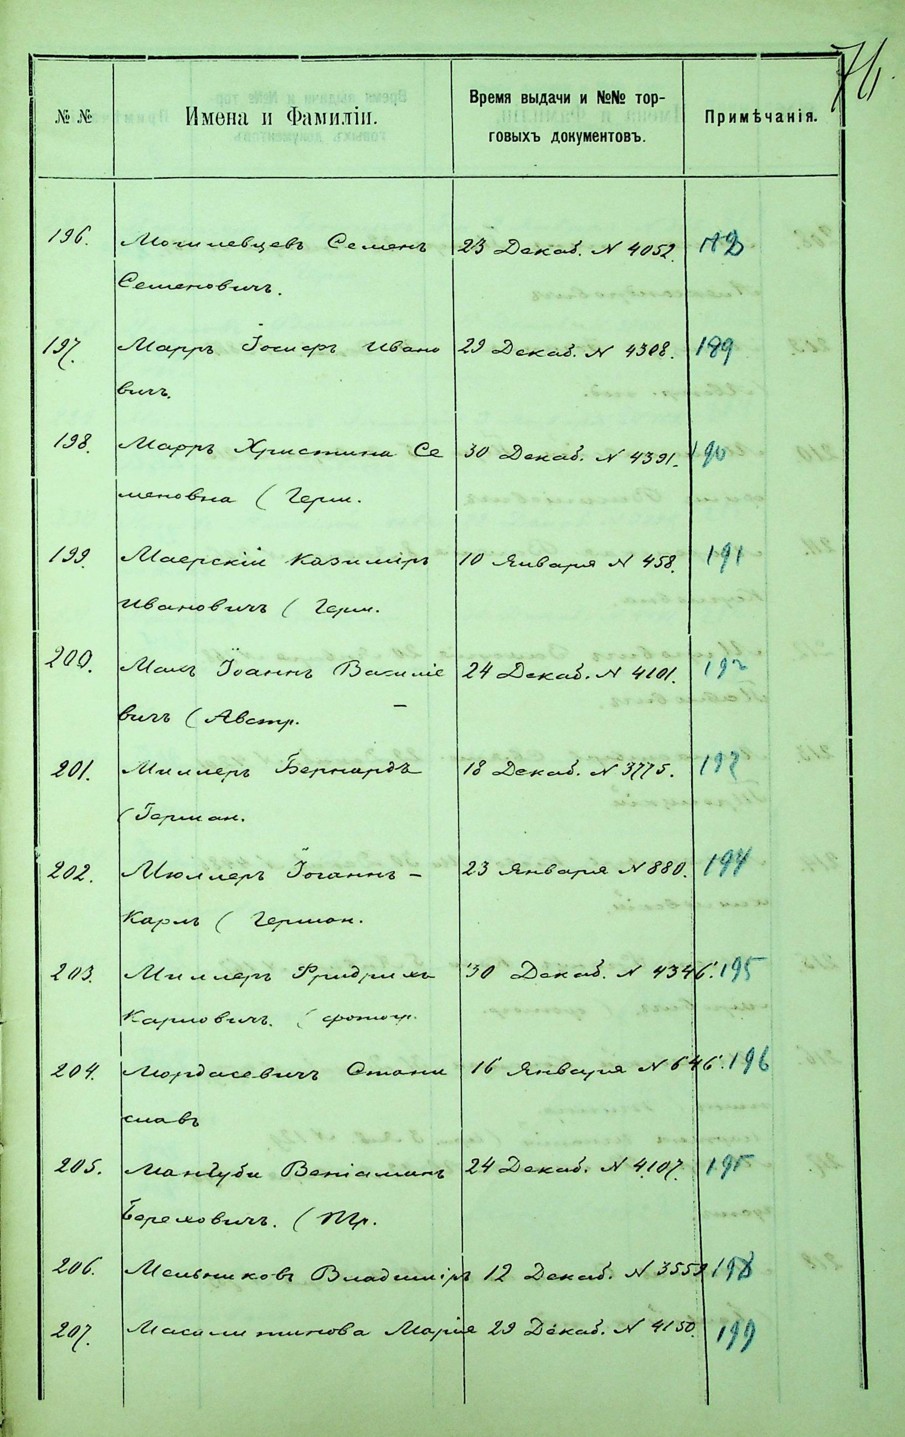 76
№ №
Имена и Фамиліи.
Время выдачи и №№ тор-
говыхъ документовъ.
Примѣчанія.
196. Могилевцевъ Семенъ 23 Декаб. N 4052.
Семеновичъ.
197. Марръ Іосифъ Ивано 29 Декаб. N 4308. 189
вичъ.
198. Марръ Христина Се 30 Декаб. N 4391. 190
меновна (Герм.
199. Маерскій Казиміръ 10 Января N 458. 191
Ивановичъ (Герм.
200. Маль Іоаннъ Василіе 24 Декаб. N 4101. 192
вичъ (Австр.
201. Миллеръ Бернардъ 18 Декаб. N 3775. 193
(Герман.
202. Мюллеръ Іоганнъ - 23 Января N 880. 194
Карлъ (Герман.
203. Миллеръ Фридрихъ 30 Декаб. N 4346. 195
Карловичъ. (фотогр.
204. Мордасевичъ Стани 16 Января N 646. 196
славъ
205. Мангуби Веніаминъ 24 Декаб. N 4107.
Береховичъ. (
206. Мельниковъ Владиміръ 12 Декаб. N 3559 198
207. Марія 29 Декаб. N 4150. 199